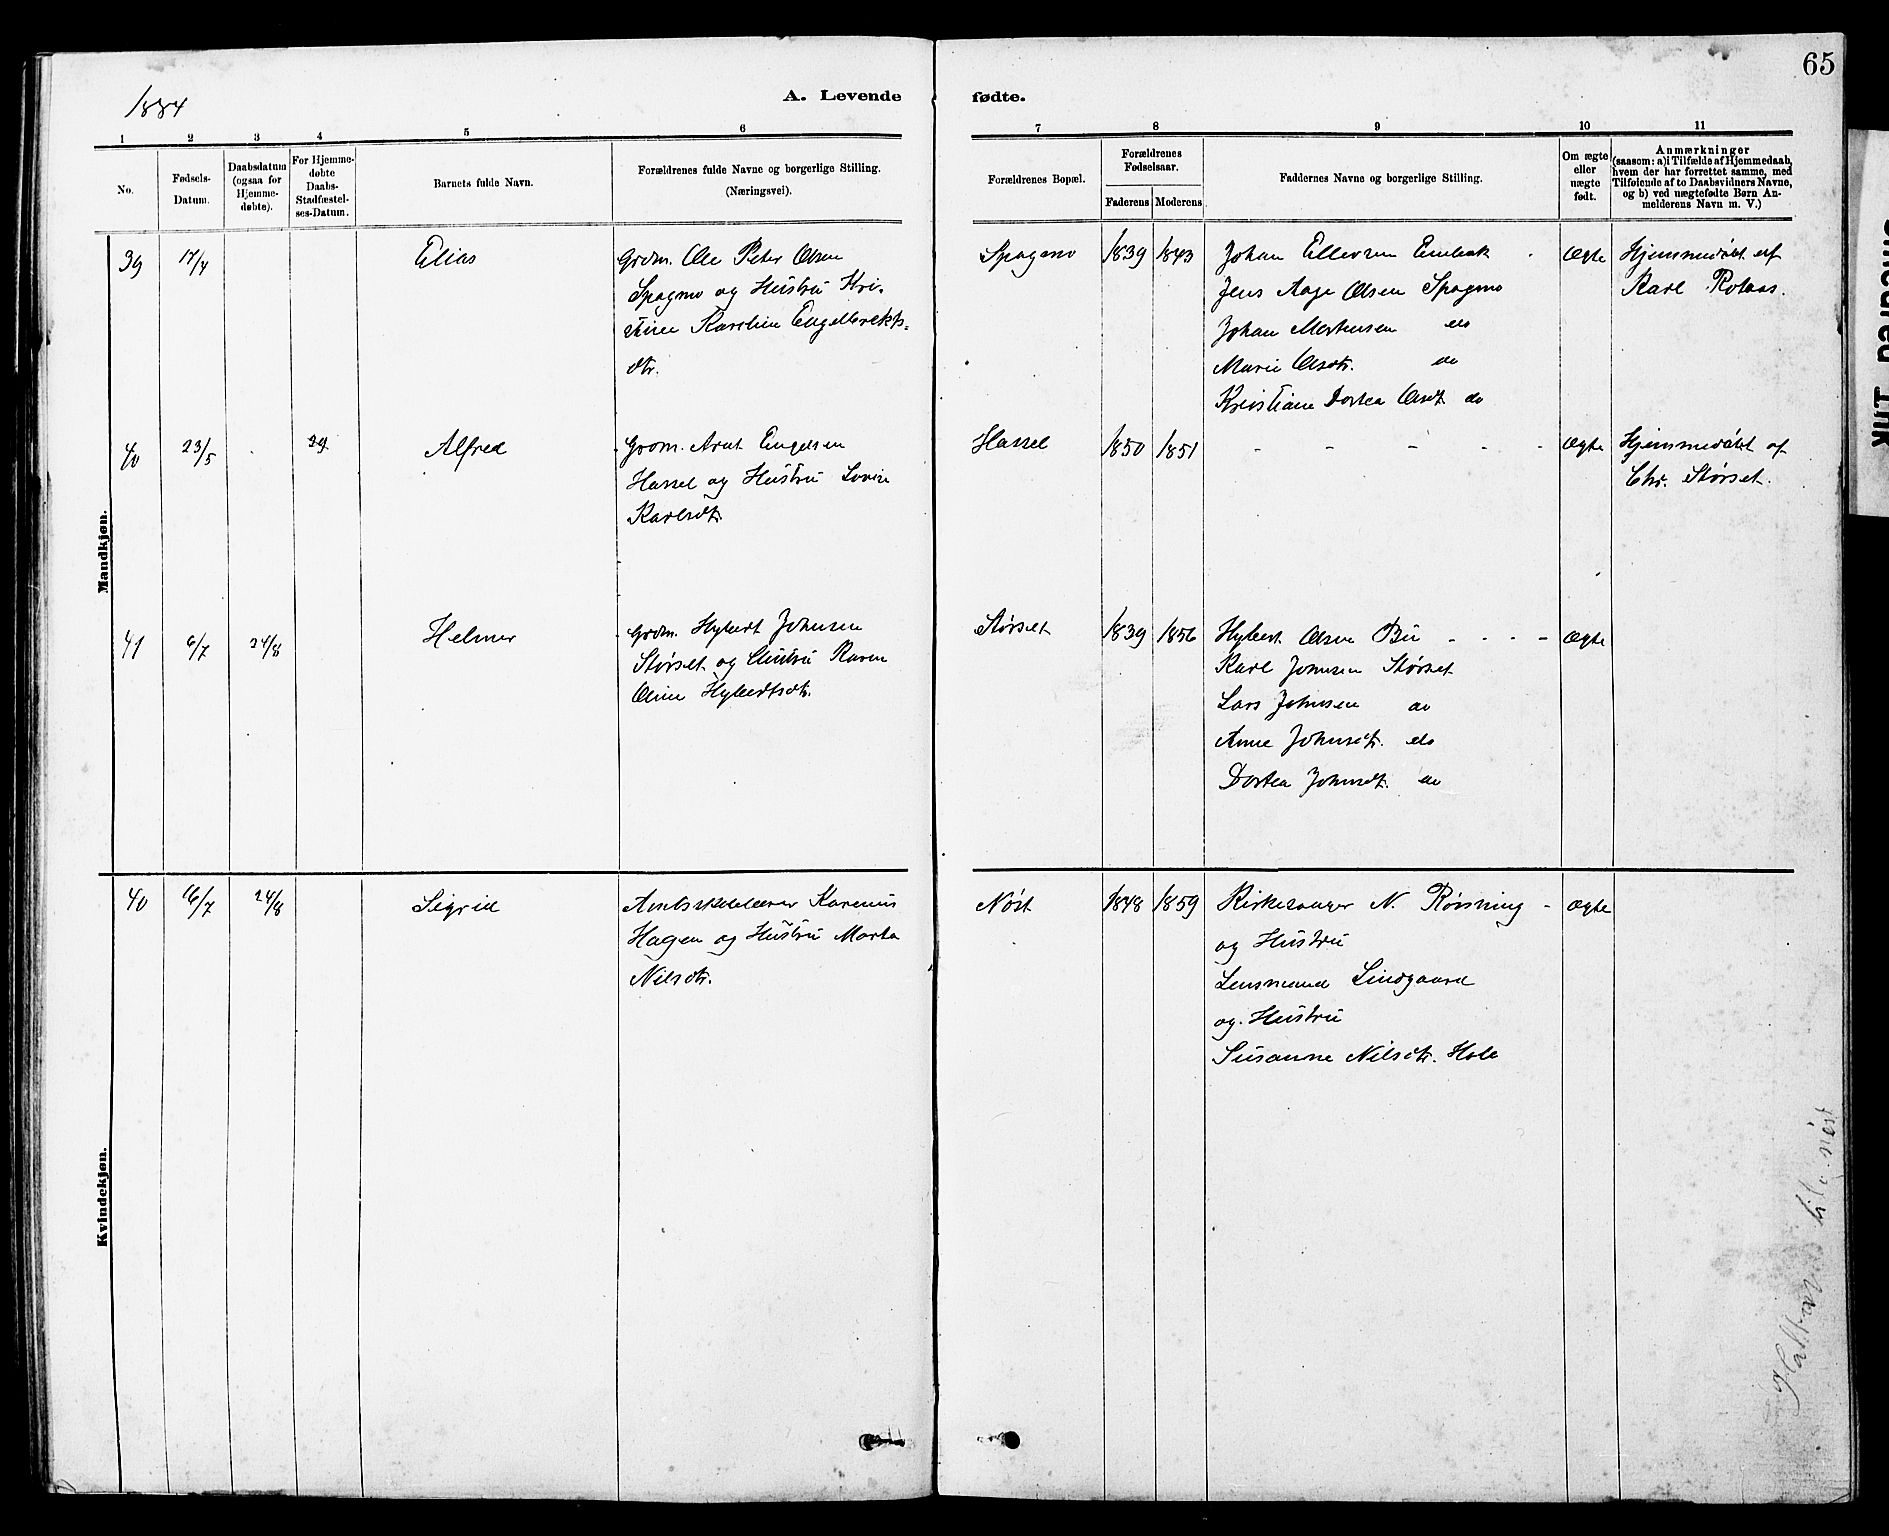 65
1884
A. Levende fødte.
1 2 3 4 5 6 7 8 9 10 11
No.
Fødsels-Datum.
Daabsdatum (ogsaa for Hjemme-døbte).
For Hjemme-døbte Daabs-Stadfæstel-ses-Datum.
Barnets fulde Navn.
Forældrenes fulde Navne og borgerlige Stilling.
(Næringsvei).
Forældrenes Bopæl.
Forældrenes Fødselsaar.
Faderens Moderens
Faddernes Navne og borgerlige Stilling.
Om ægte eller uægte født.
Anmærkninger
(saasom: a) i Tilfælde af Hjemmedaab, hvem der har forrettet samme, med Tilføiende af to Daabsvidners Navne, og b) ved uægtefødte Børn An-melderens Navn m. V.)
Mandkjøn.
39 17/4 Elias
Grdm. Ole Peter Olsen
Spagmo og Hustru Kri-
stine Karoline Engelbrekts-
dtr.
Spagmo 1839 1843
Johan Ellevsen
Jens Aage Olsen Spagmo
Johan Mortensen do
Marie Olsdtr. do
Kristiane Dortea Olsdt do
Ægte
Hjemmedøbt af
Karl Rotaas.
40 23/5 29 Alfred
Grdm. Arnt Engelsen
Hassel og Hustru Lovise
Karlsdt.
Hassel 1850 1851
Ægte
Hjemmedøbt af
Chr. Størset.
41 6/7 24/8 Helmer
Grdm. Hybert Johnsen
Størset og Hustru Karen
Oline Hybertsdtr.
Størset 1839 1856
Hybert Olsen Bü
Karl Johnsen Størset
Lars Johnsen do
Anne Johnsdtr. do
Dortea Johnsdt. do
Ægte
Kvindekjøn.
40 16/7 24/8 Sigrid
Amtsskolelærer Karenus
Hagen og Hustru Marta
Nilsdtr.
Nøst 1848 1859
Kirkesanger N. Rønning
og Hustru
Lensmand Lindgaard
og Hustru
Susanne Nilsdtr. Hole
Ægte